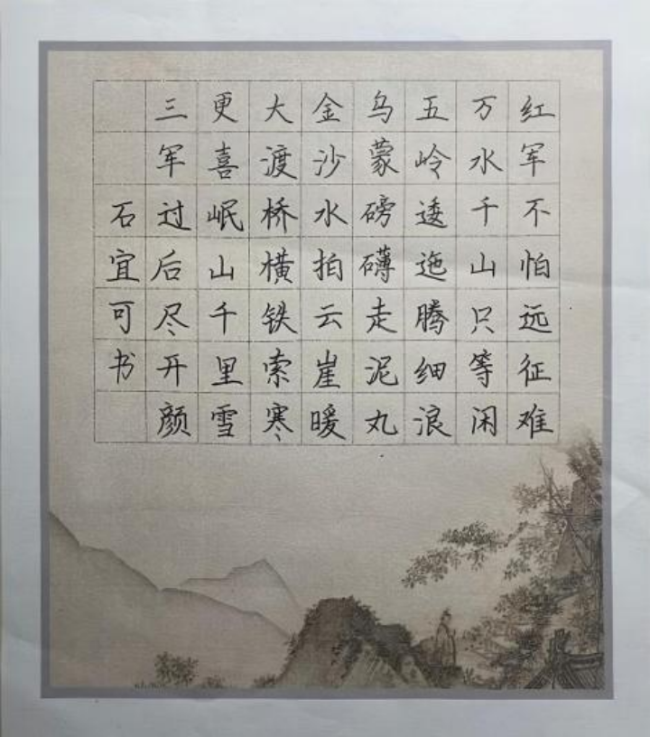 红军不怕远征难
万水千山只等闲
五岭逶迤腾细浪
乌蒙磅礴走泥丸
金沙水拍云崖暖
大渡桥横铁索寒
更喜岷山千里雪
三军过后尽开颜
石宜可书